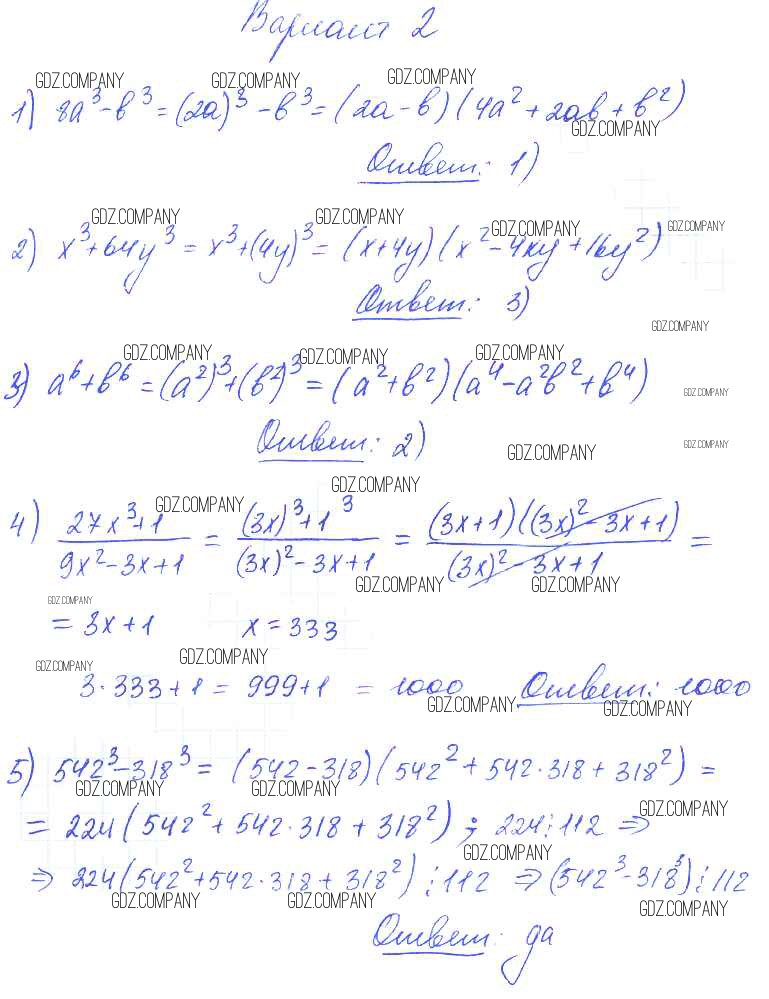 Вариант 2
GDZ.COMPANY GDZ.COMPANY GDZ.COMPANY
1) 8a³-b³=(2a)³-b³=(2a-b)(4a²+2ab+b²)
GDZ.COMPANY
Ответ: 1)
GDZ.COMPANY GDZ.COMPANY GDZ.COMPANY GDZ.COMPANY
2) x³+64y³=x³+(4y)³=(x+4y)(x²-4xy+16y²)
Ответ: 3)
GDZ.COMPANY
GDZ.COMPANY GDZ.COMPANY GDZ.COMPANY
3) a⁶+b⁶=(a²)³+(b²)³=(a²+b²)(a⁴-a²b²+b⁴)
GDZ.COMPANY
Ответ: 2)
GDZ.COMPANY GDZ.COMPANY
GDZ.COMPANY
GDZ.COMPANY
4) (27x³+1)/(9x²-3x+1) = ((3x)³+1³)/((3x)²-3x+1) = ((3x+1)((3x)²-3x+1))/((3x)²-3x+1) =
GDZ.COMPANY GDZ.COMPANY
GDZ.COMPANY
=3x+1 x=333
GDZ.COMPANY GDZ.COMPANY
3·333+1=999+1=1000 Ответ: 1000
GDZ.COMPANY GDZ.COMPANY
5) 542³-318³=(542-318)(542²+542·318+318²)=
GDZ.COMPANY GDZ.COMPANY
=224(542²+542·318+318²); 224⋮112 ⇒
GDZ.COMPANY
GDZ.COMPANY
⇒ 224(542²+542·318+318²)⋮112 ⇒(542³-318³)⋮112
GDZ.COMPANY GDZ.COMPANY GDZ.COMPANY
Ответ: да